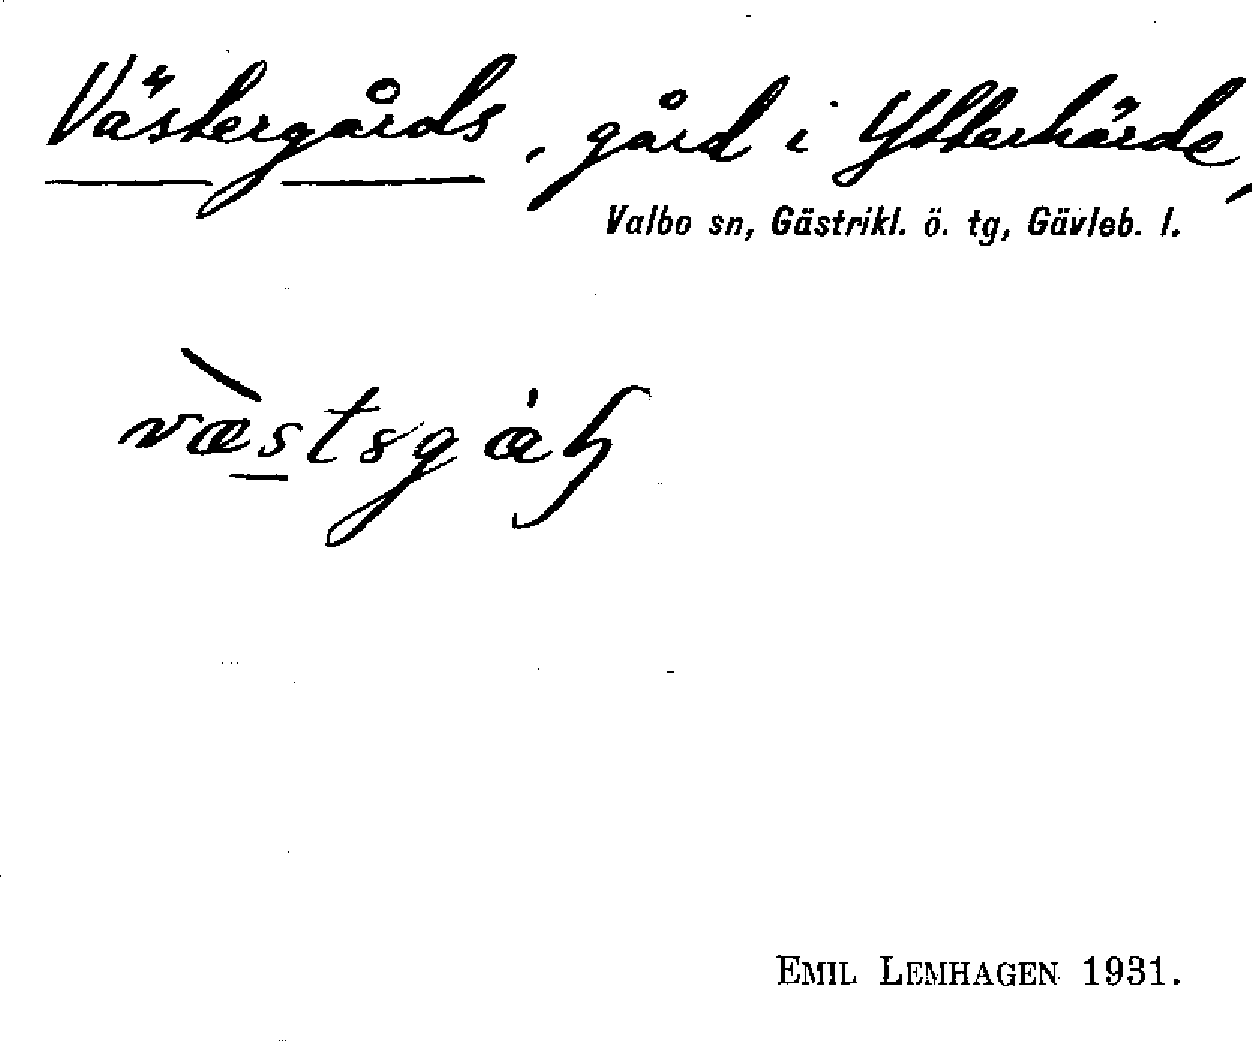 Västergårds, gård i Ytterhärde,
Valbo sn, Gästrikl. ö. tg, Gävleb. l.
EMIL LEMHAGEN 1931.